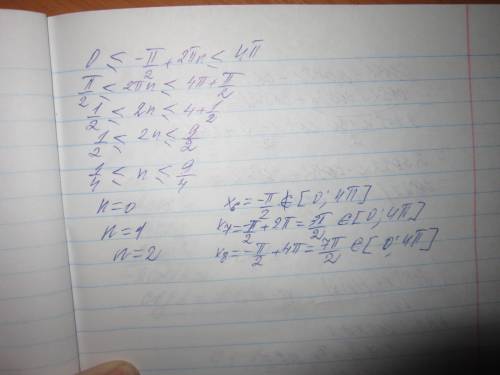 0 ≤ -π/2 + 2πn ≤ 4π
π/2 ≤ 2πn ≤ 4π + π/2
1/2 ≤ 2n ≤ 4 + 1/2
1/2 ≤ 2n ≤ 9/2
1/4 ≤ n ≤ 9/4
n = 0 x₆ = -π/2 ∉ [0; 4π]
n = 1 x₇ = -π/2 + 2π = 3π/2 ∈ [0; 4π]
n = 2 x₈ = -π/2 + 4π = 7π/2 ∈ [0; 4π]